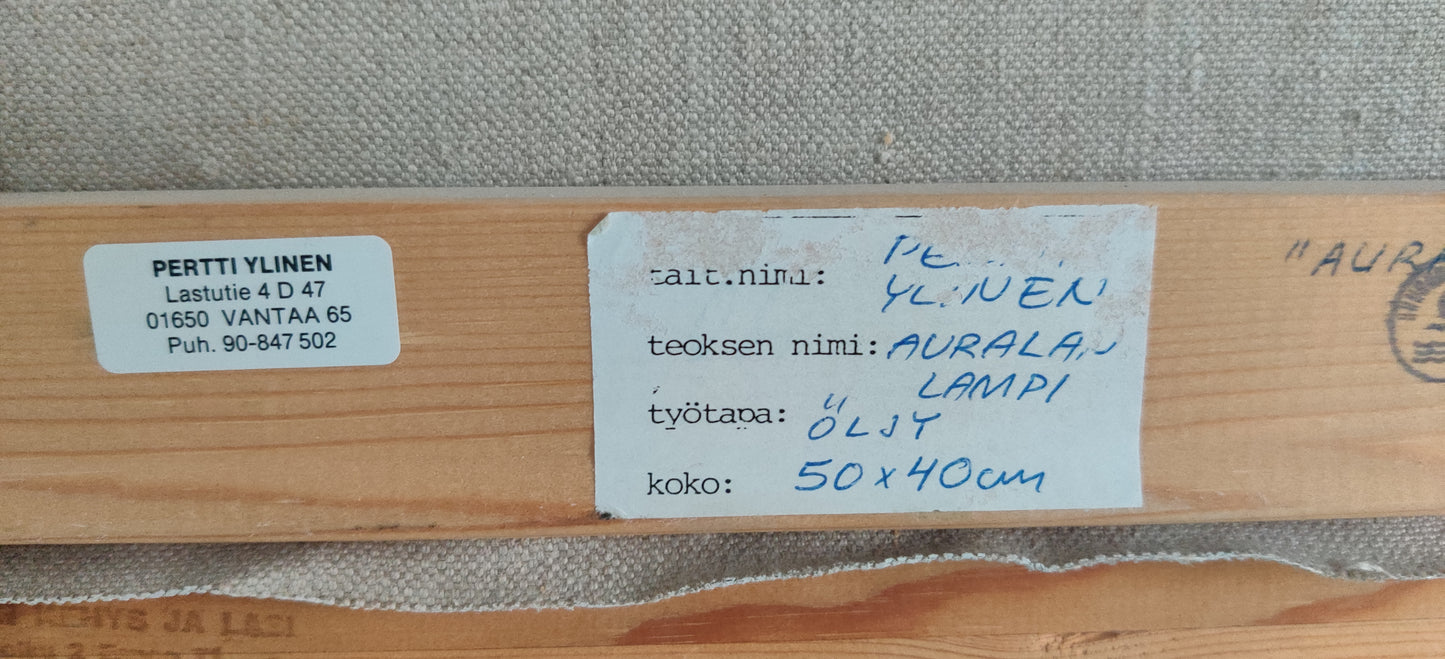 PERTTI YLINEN
Lastutie 4 D 47
01650 VANTAA 65
Puh. 90-847 502
tait.nimi:
YLINEN
teoksen nimi: AURALAN
LAMPI
työtapa: ÖLJY
koko: 50 x 40 cm
KEHYS JA LASI